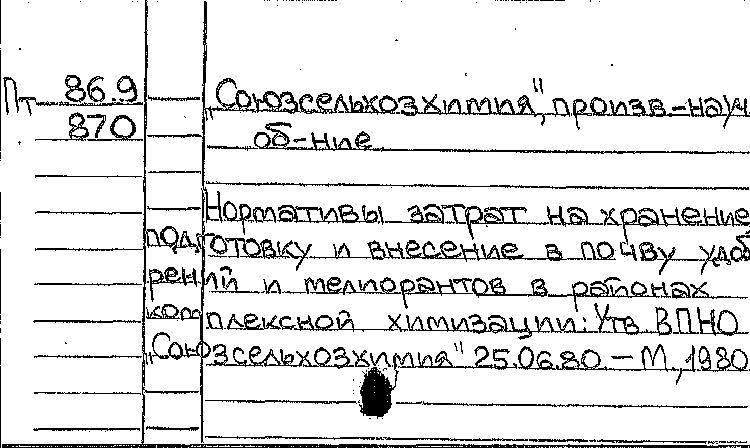 Пт 86.9 „Союзсельхозхимия", произв.-науч
870 об-ние
Нормативы затрат на хранение
подготовку и внесение в почву удоб
рений и мелиорантов в районах
комплексной химизации: Утв ВПНО
„Союзсельхозхимия" 25.06.80. – М., 1980